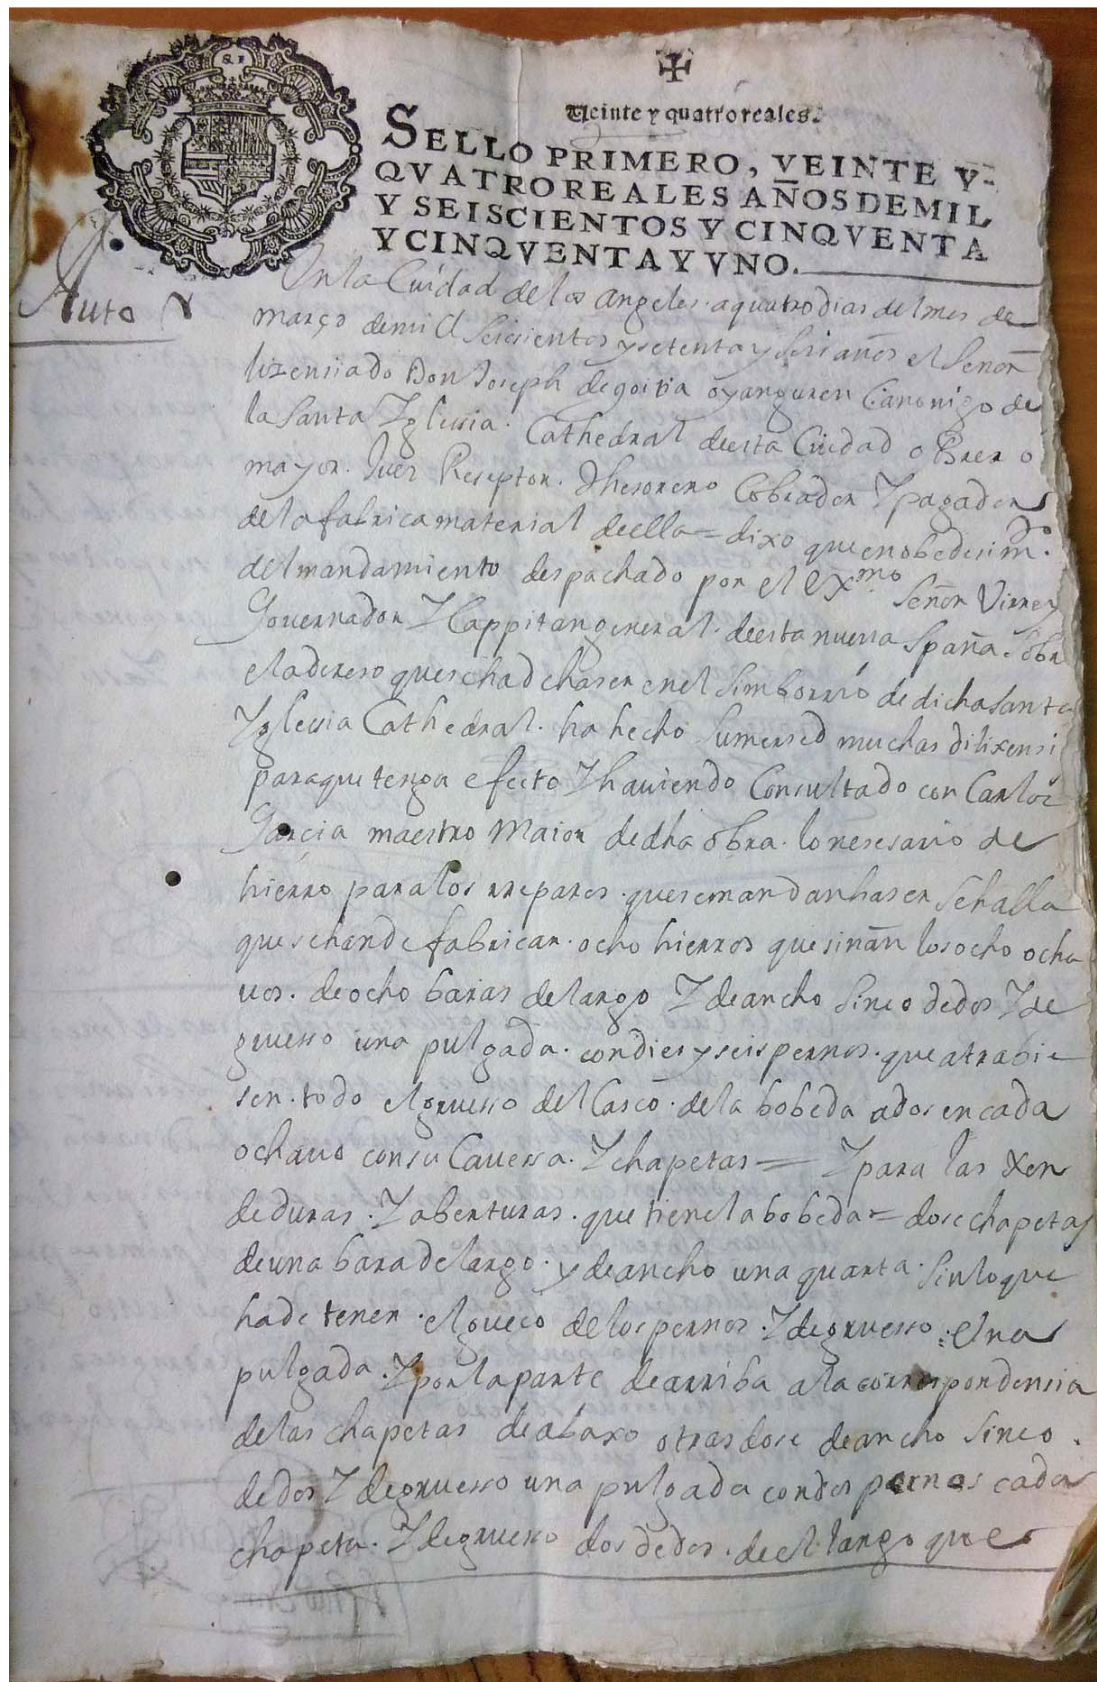 Veinte y quatro reales.
SELLO PRIMERO, VEINTE Y
QVATRO REALES AÑOS DE MIL
Y SEISCIENTOS Y CINQVENTA
Y CINQVENTA Y VNO.
Auto
En la Cuidad de los angeles. a quatro dias del mes de
março de mil seisientos y setenta y seis años el Señor
lizensiado Don Joseph de goitia oyanguren Canonigo de
la Santa Yglesia. Cathedral de esta Ciudad obrero
mayor. Jues Reseptor. Thesorero Cobrador Y pagador
de la fabrica material de ella = dixo que en obedesim.to
del mandamiento despachado por el Exmo Señor Virrey
Governador Y Cappitan general. de esta nueva Spaña. Sobre
el adereso que se ha de haser en el Simborrio de dicha Santa
Yglesia Cathedral. ha hecho Su mersed muchas dilixensi
para que tenga efecto Y haviendo Consultado con Carlos
Garcia maestro Maior de dha obra. lo nesesario de
hierro para los rreparos. que se mandan haser Se halla
que se han de fabricar. ocho hierros que siñan los ocho ocha
vos. de ocho baras de largo Y de ancho Sinco dedos Y de
gruesso una pulgada. con dies y seis pernos. que atrabie
sen. todo el gruesso del Casco. de la bobeda a dos en cada
ochavo con su Cavessa. Y chapetas = Y para las xen
deduras. Y aberturas. que tiene la bobeda = dose chapetas
de una bara de largo. y de ancho una quarta. Sin lo que
ha de tener. el gueco de los pernos. Y de gruesso. una
pulgada. Y por la parte de arriba a la correspondensia
de las chapetas de abaxo otras dose de ancho Sinco.
dedos Y de gruesso una pulgada con dos pernos cada
chapeta. Y de gruesso dos dedos. de el largo que